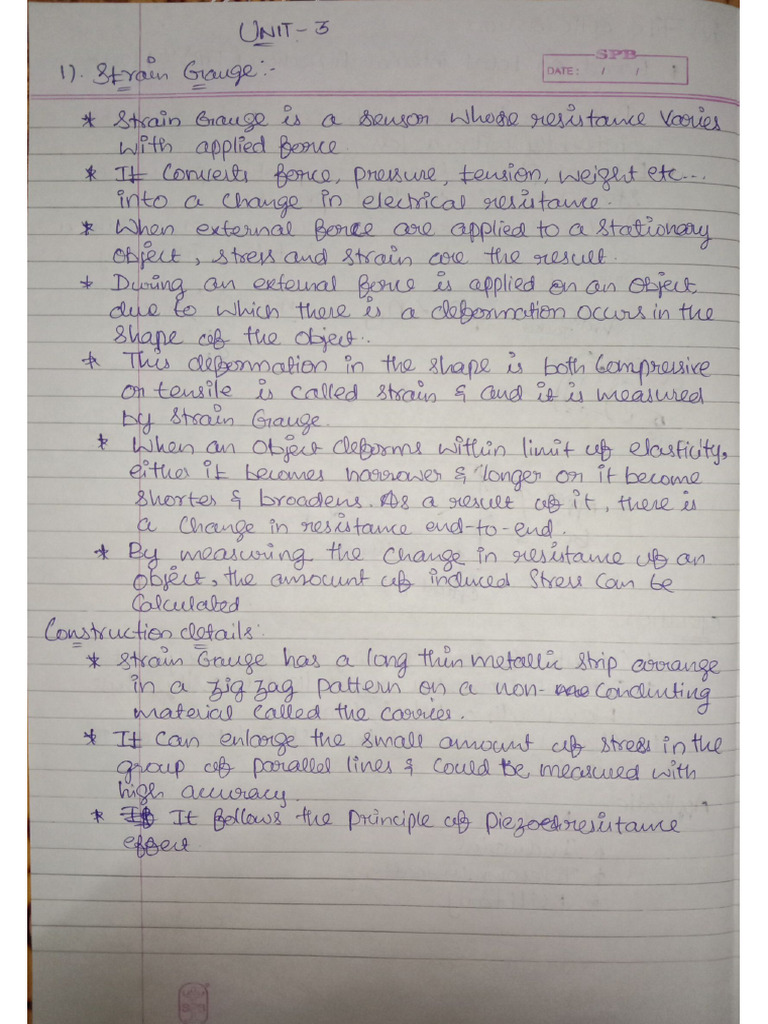 UNIT-3
SPB
1). Strain Gauge:-
DATE: / /
* Strain Gauge is a sensor whose resistance varies
with applied force.
* It converts force, pressure, tension, weight etc...
into a change in electrical resistance.
* When external force are applied to a stationary
object, stress and strain are the result.
* During an external force is applied on an object
due to which there is a deformation occurs in the
shape of the object..
* This deformation in the shape is both compressive
or tensile is called strain & and it is measured
by strain Gauge.
* When an object deforms within limit of elasticity,
either it becomes narrower & longer or it become
shorter & broadens. As a result of it, there is
a change in resistance end-to-end.
* By measuring the change in resistance of an
object, the amount of induced stress can be
calculated
Construction details:
* Strain Gauge has a long thin metallic strip arrange
in a zig zag pattern on a non- conducting
material called the carrier.
* It can enlarge the small amount of stress in the
group of parallel lines & could be measured with
high accuracy.
* It follows the principle of Piezoresistance
effect